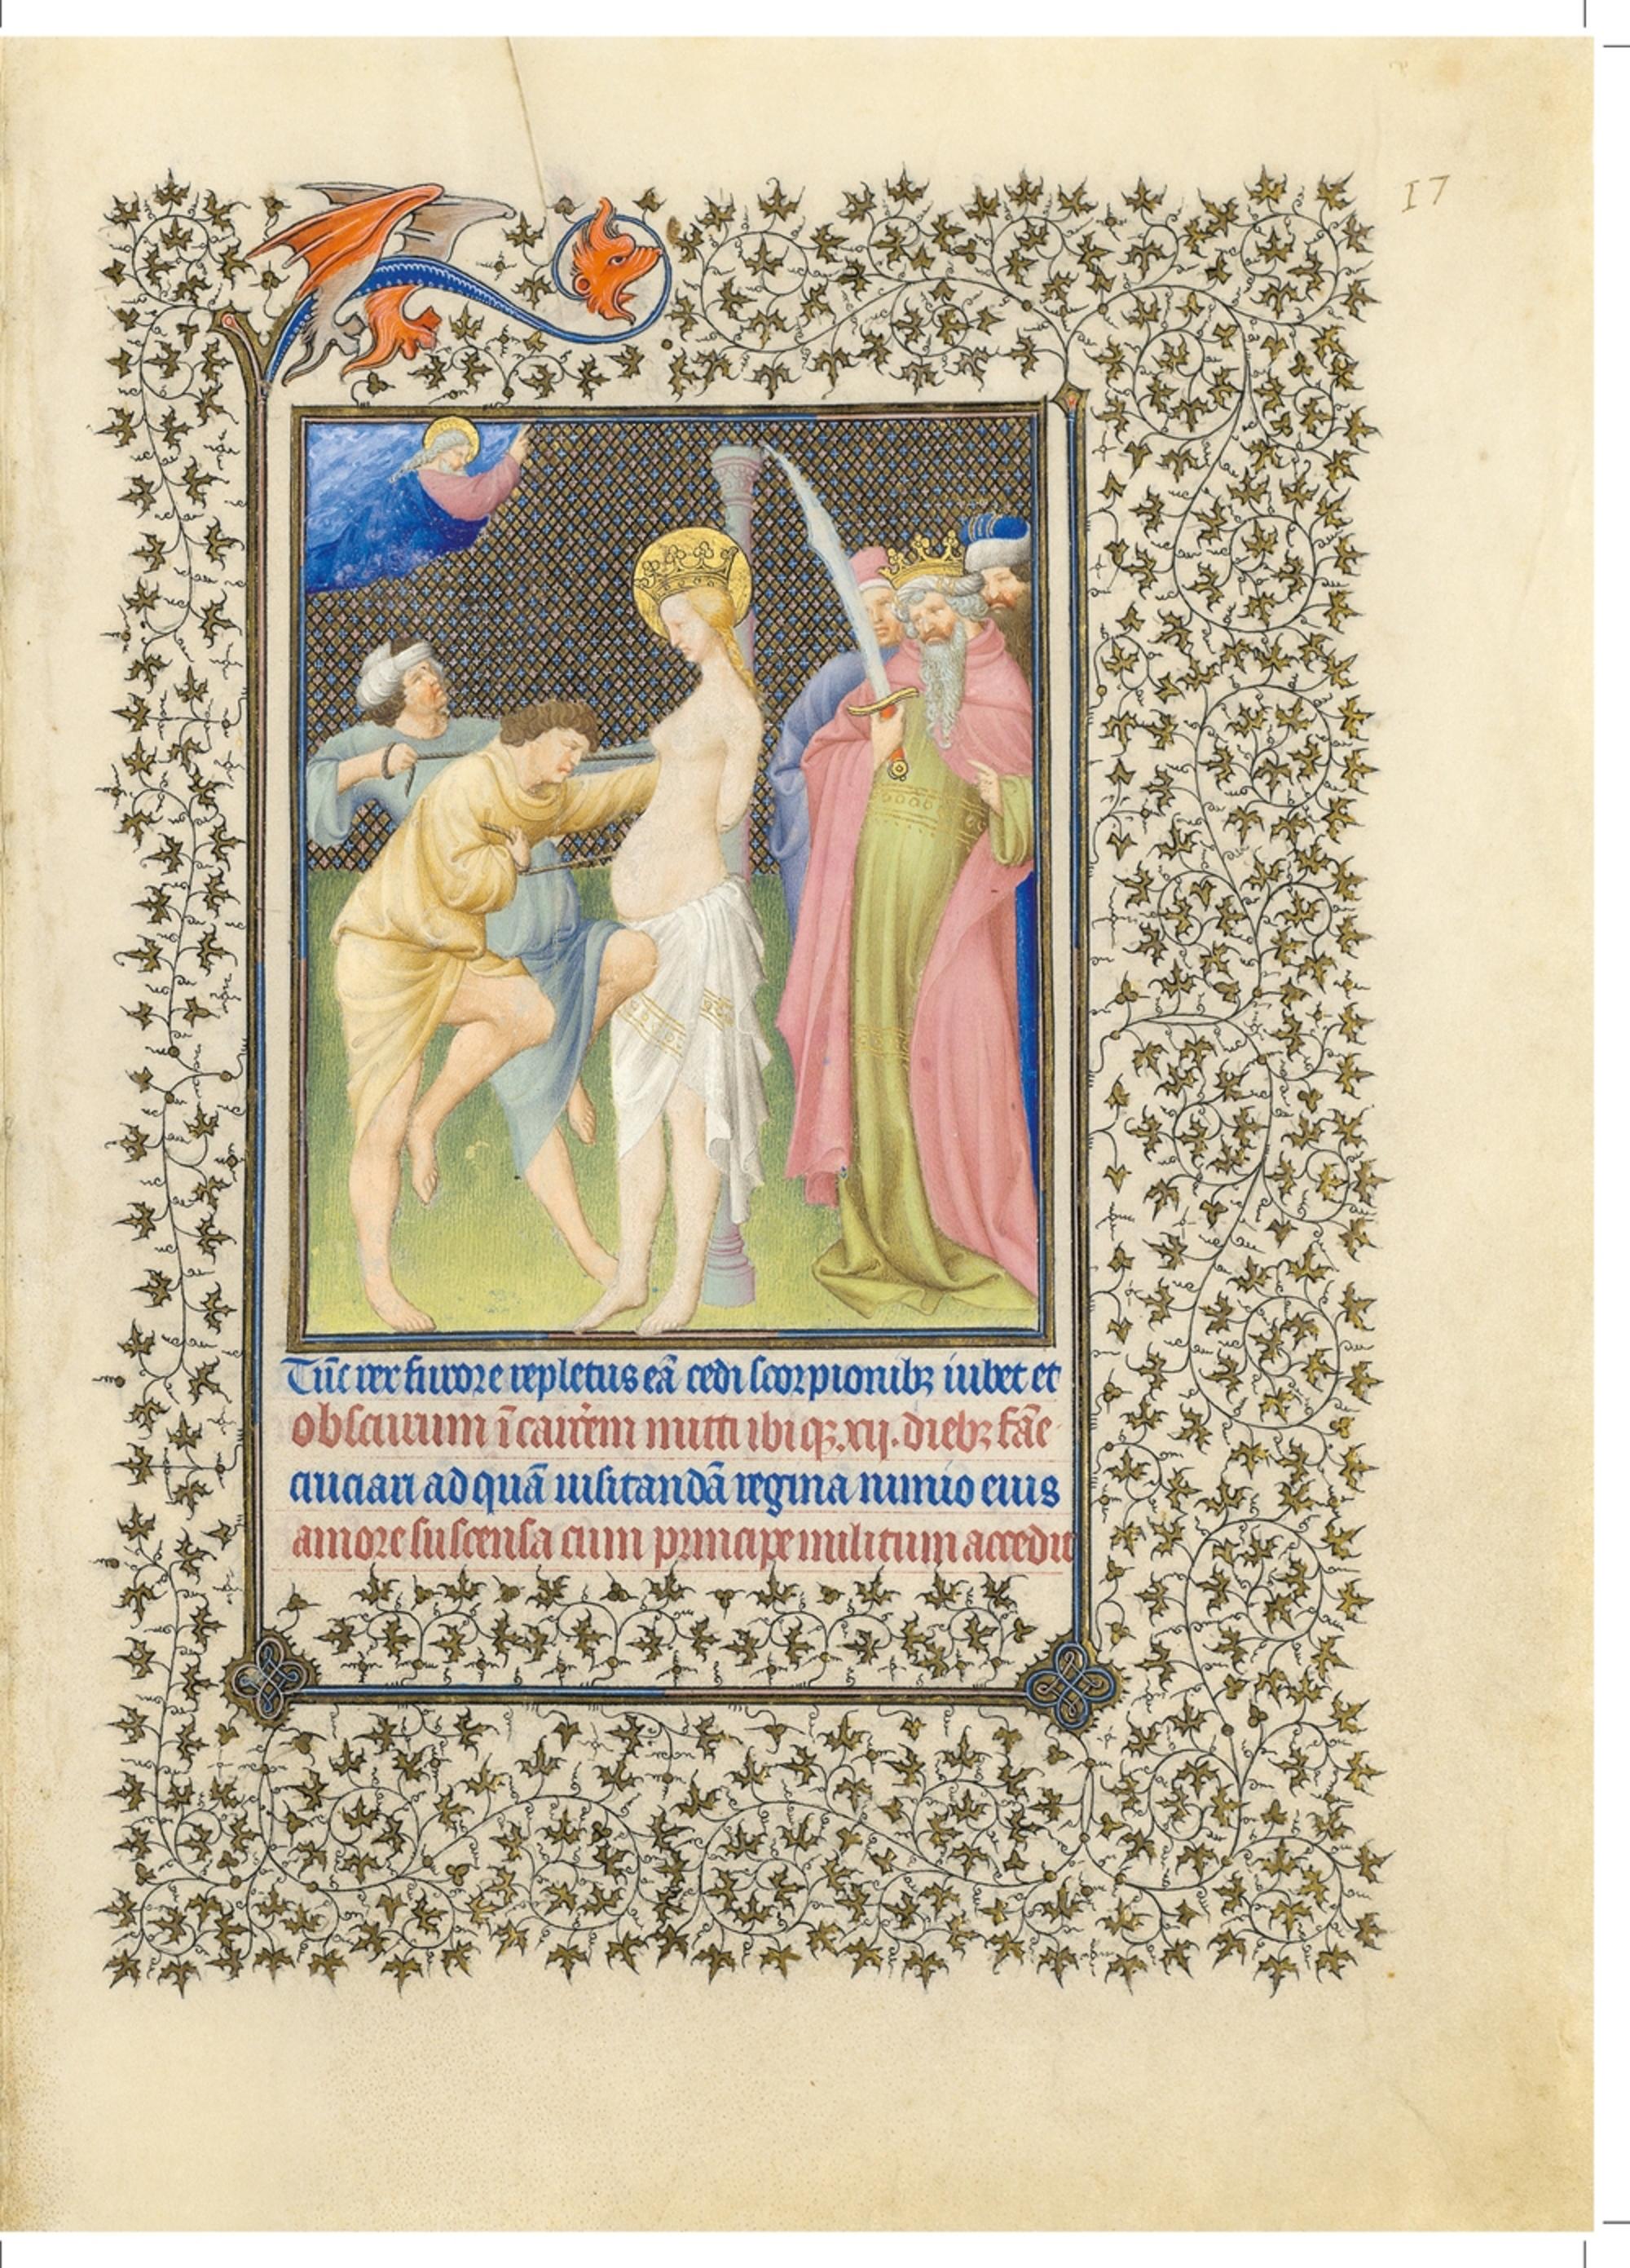 17
Tūc rex furore repletus eā cedi scorpionibꝫ iubet et
obscurum ī carcēm mitti ibiqꝫ .xij. diebꝫ fāe
cruciari ad quā uisitandā regina nimio eius
amore suscensa cum principe militum accedit